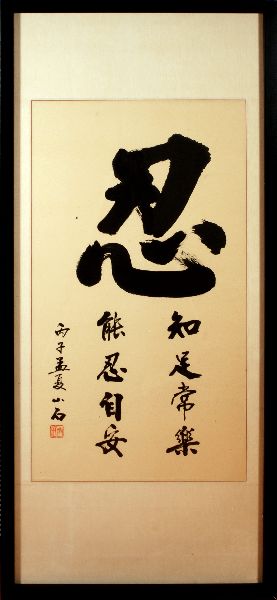 忍
知足常樂
能忍自安
丙子孟夏小石